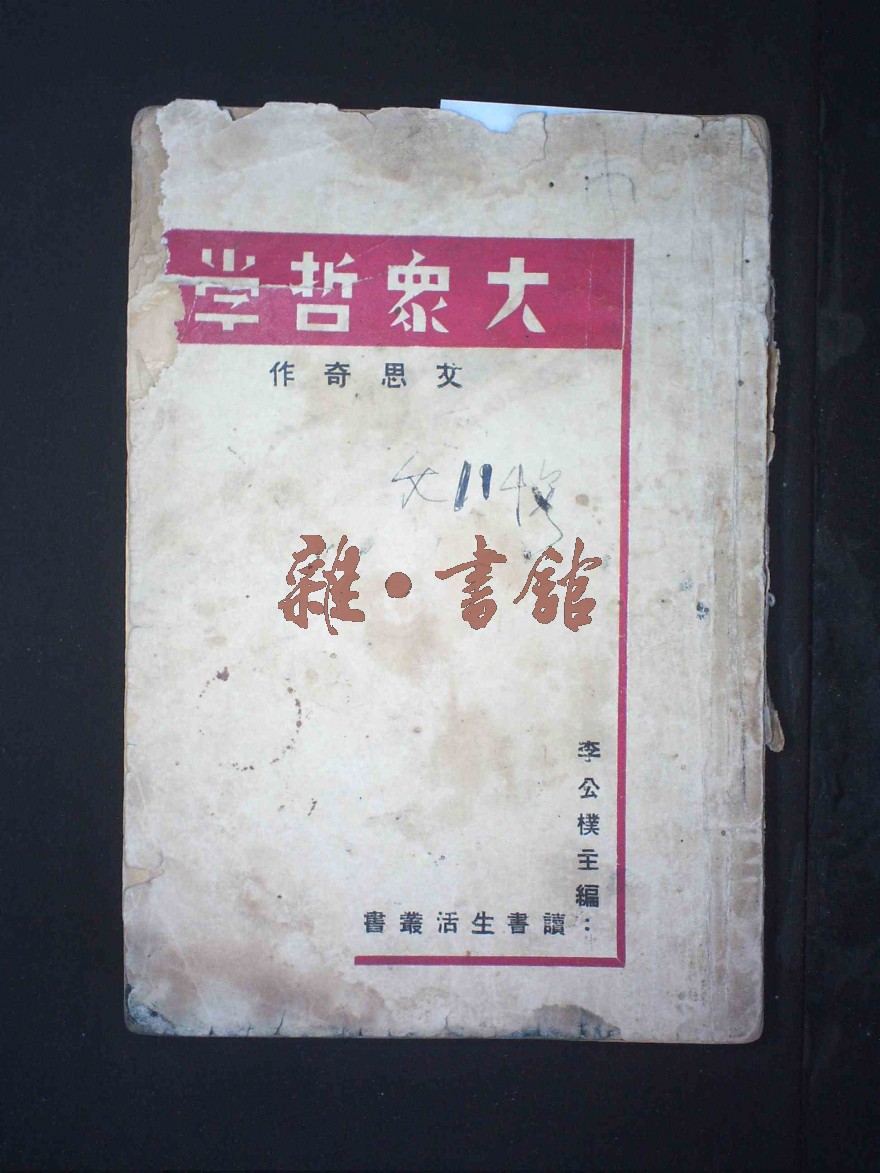 大衆哲学
艾思奇作
文1194号
雜·書館
李公樸主編：
讀書生活叢書